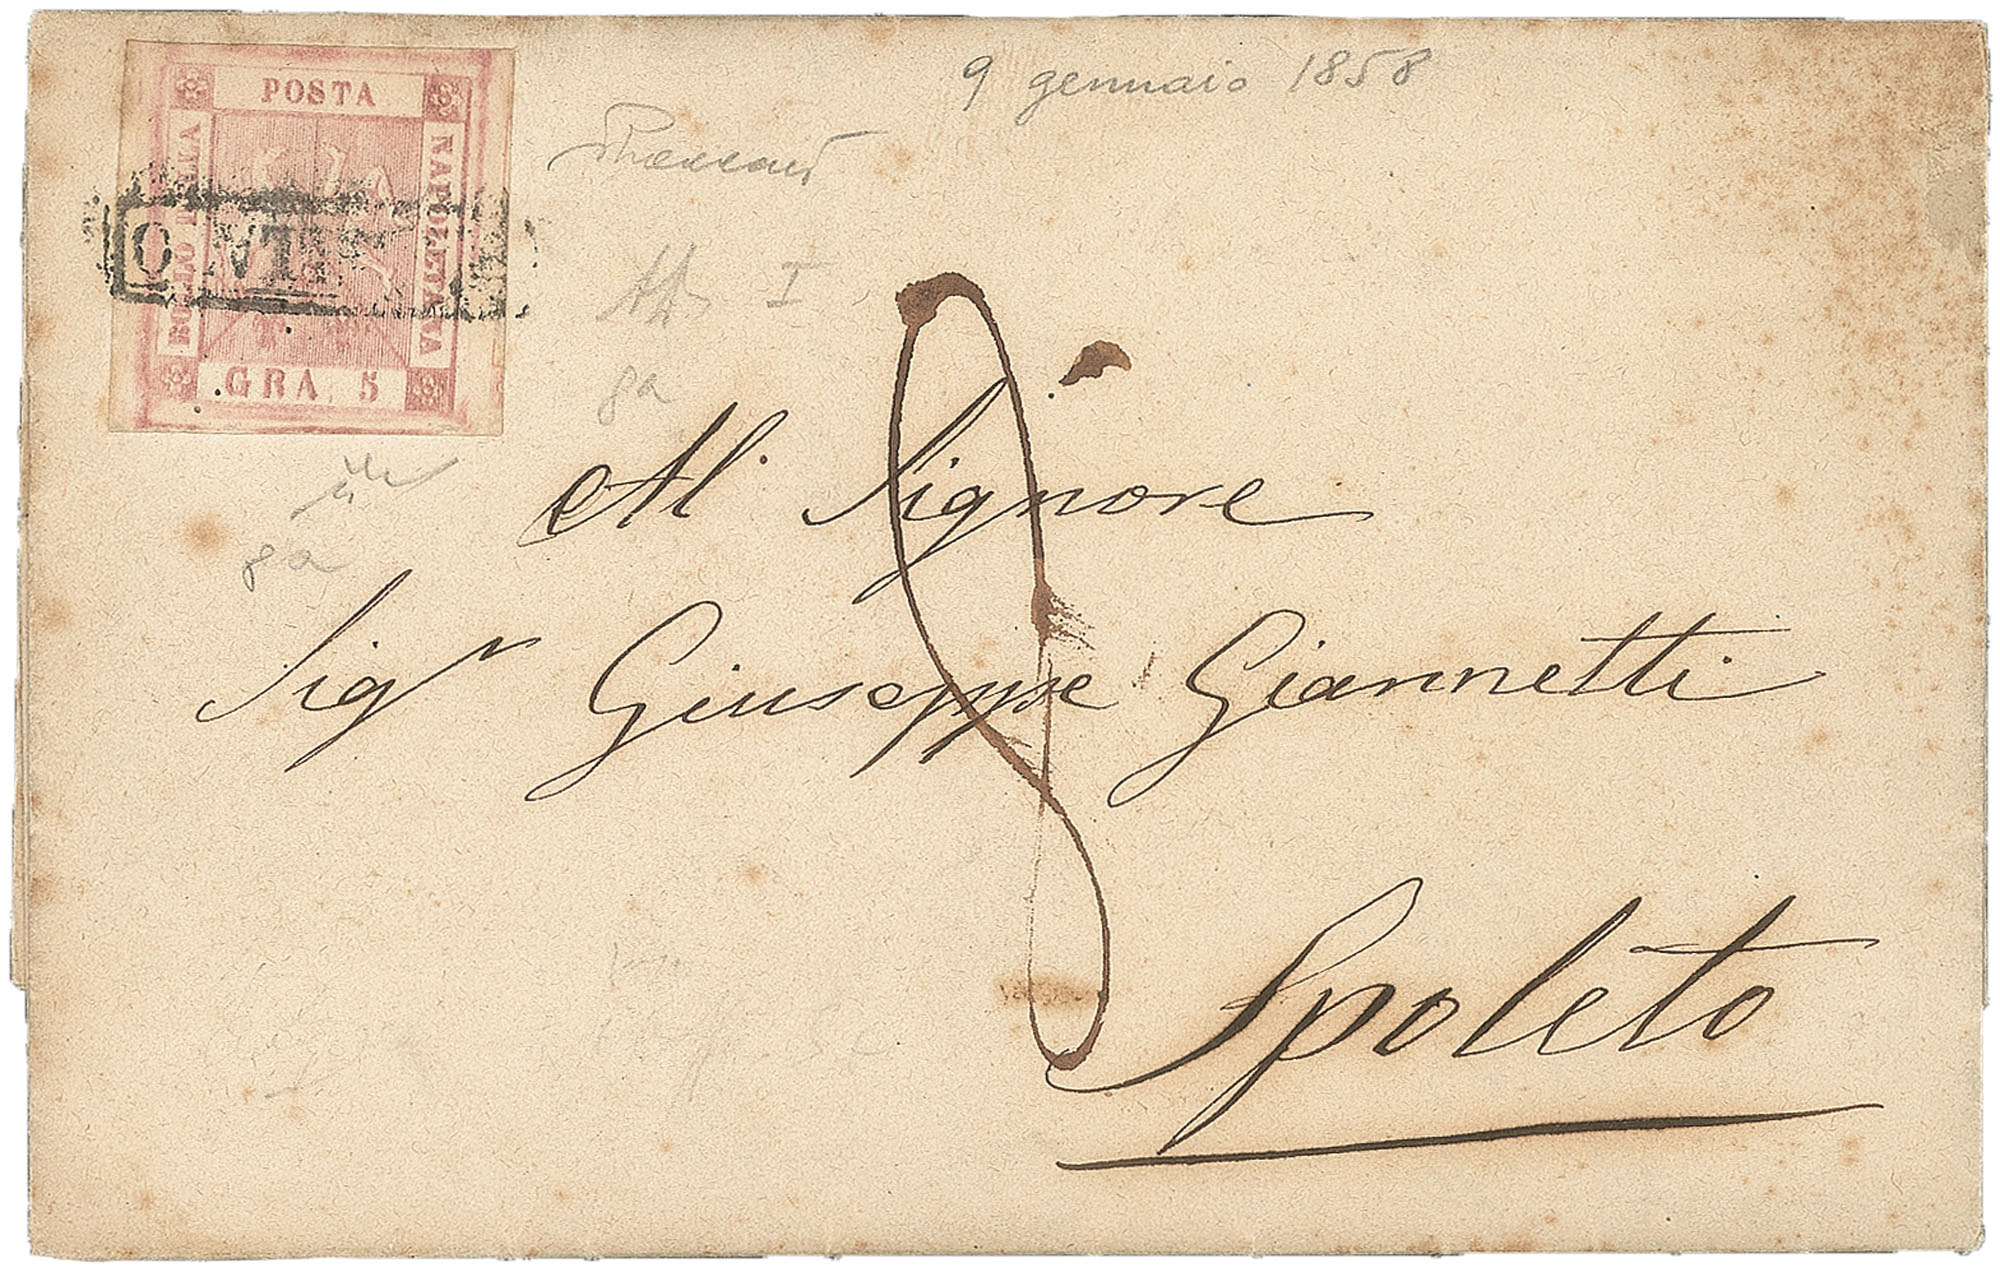 POSTA
BOLLO DELLA
NAPOLETANA
GRA. 5
9 gennaio 1858
I
8a
8a
8
Al Signore
Sigr Giuseppe Giannetti
Spoleto